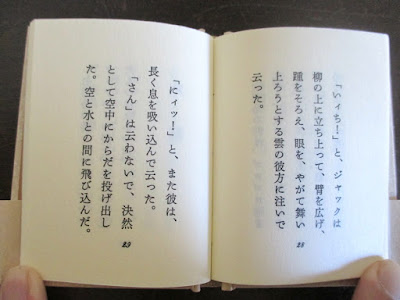 「いィち!」と、ジャックは
柳の上に立ち上って、臂を広げ、
踵をそろえ、眼を、やがて舞い
上ろうとする雲の彼方に注いで
云った。
28
「にィッ!」と、また彼は、
長く息を吸い込んで云った。
「さん」は云わないで、決然
として空中にからだを投げ出し
た。空と水との間に飛び込んだ。
29